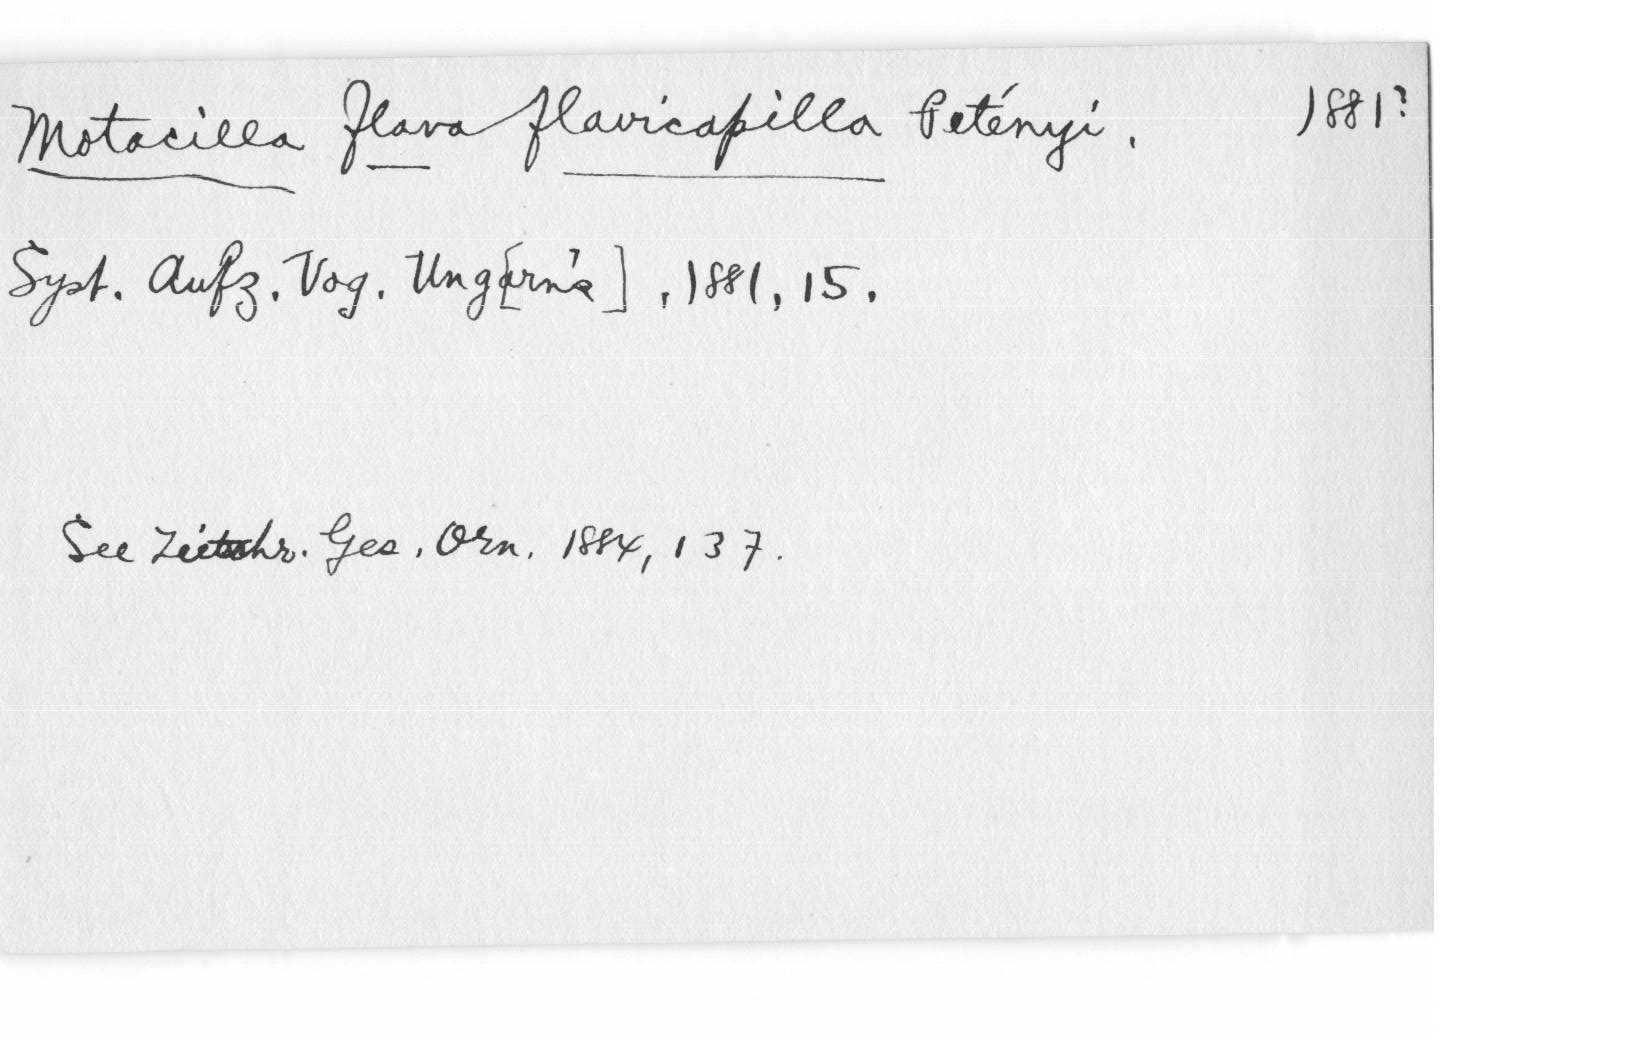 Motacilla flava flavicapilla Petényi. 1881?
Syst. Aufz. Vog. Ung[arn's], 1881, 15.
See Zeitschr. Ges. Orn. 1884, 137.